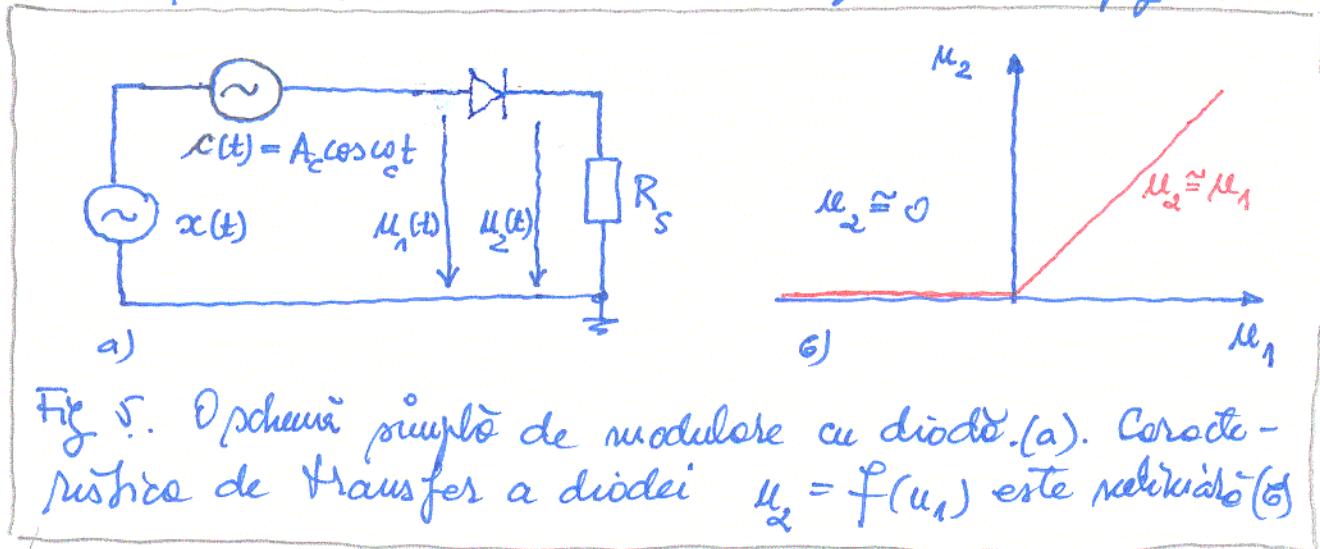 c(t) = A_c cos ω_c t
x(t)
u₁(t)
u₂(t)
R_S
a)
u₂
u₂ ≅ 0
u₂ ≅ u₁
u₁
б)
Fig 5. O schemă simplă de modulare cu diodă.(a). Caracte-
ristica de transfer a diodei u₂ = f(u₁) este neliniară(б)